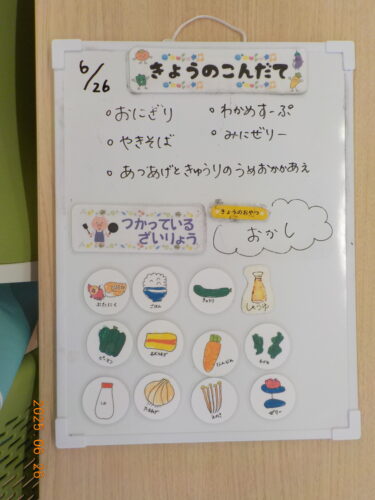 6/26
きょうのこんだて
・おにぎり ・わかめすーぷ
・やきそば ・みにぜりー
・あつあげときゅうりのうめおかかあえ
つかっている
ざいりょう
きょうのおやつ
おかし
ぶたにく ごはん きゅうり しょうゆ
ピーマン にんじん わかめ
しお たまねぎ えのき ゼリー
2025 06 26